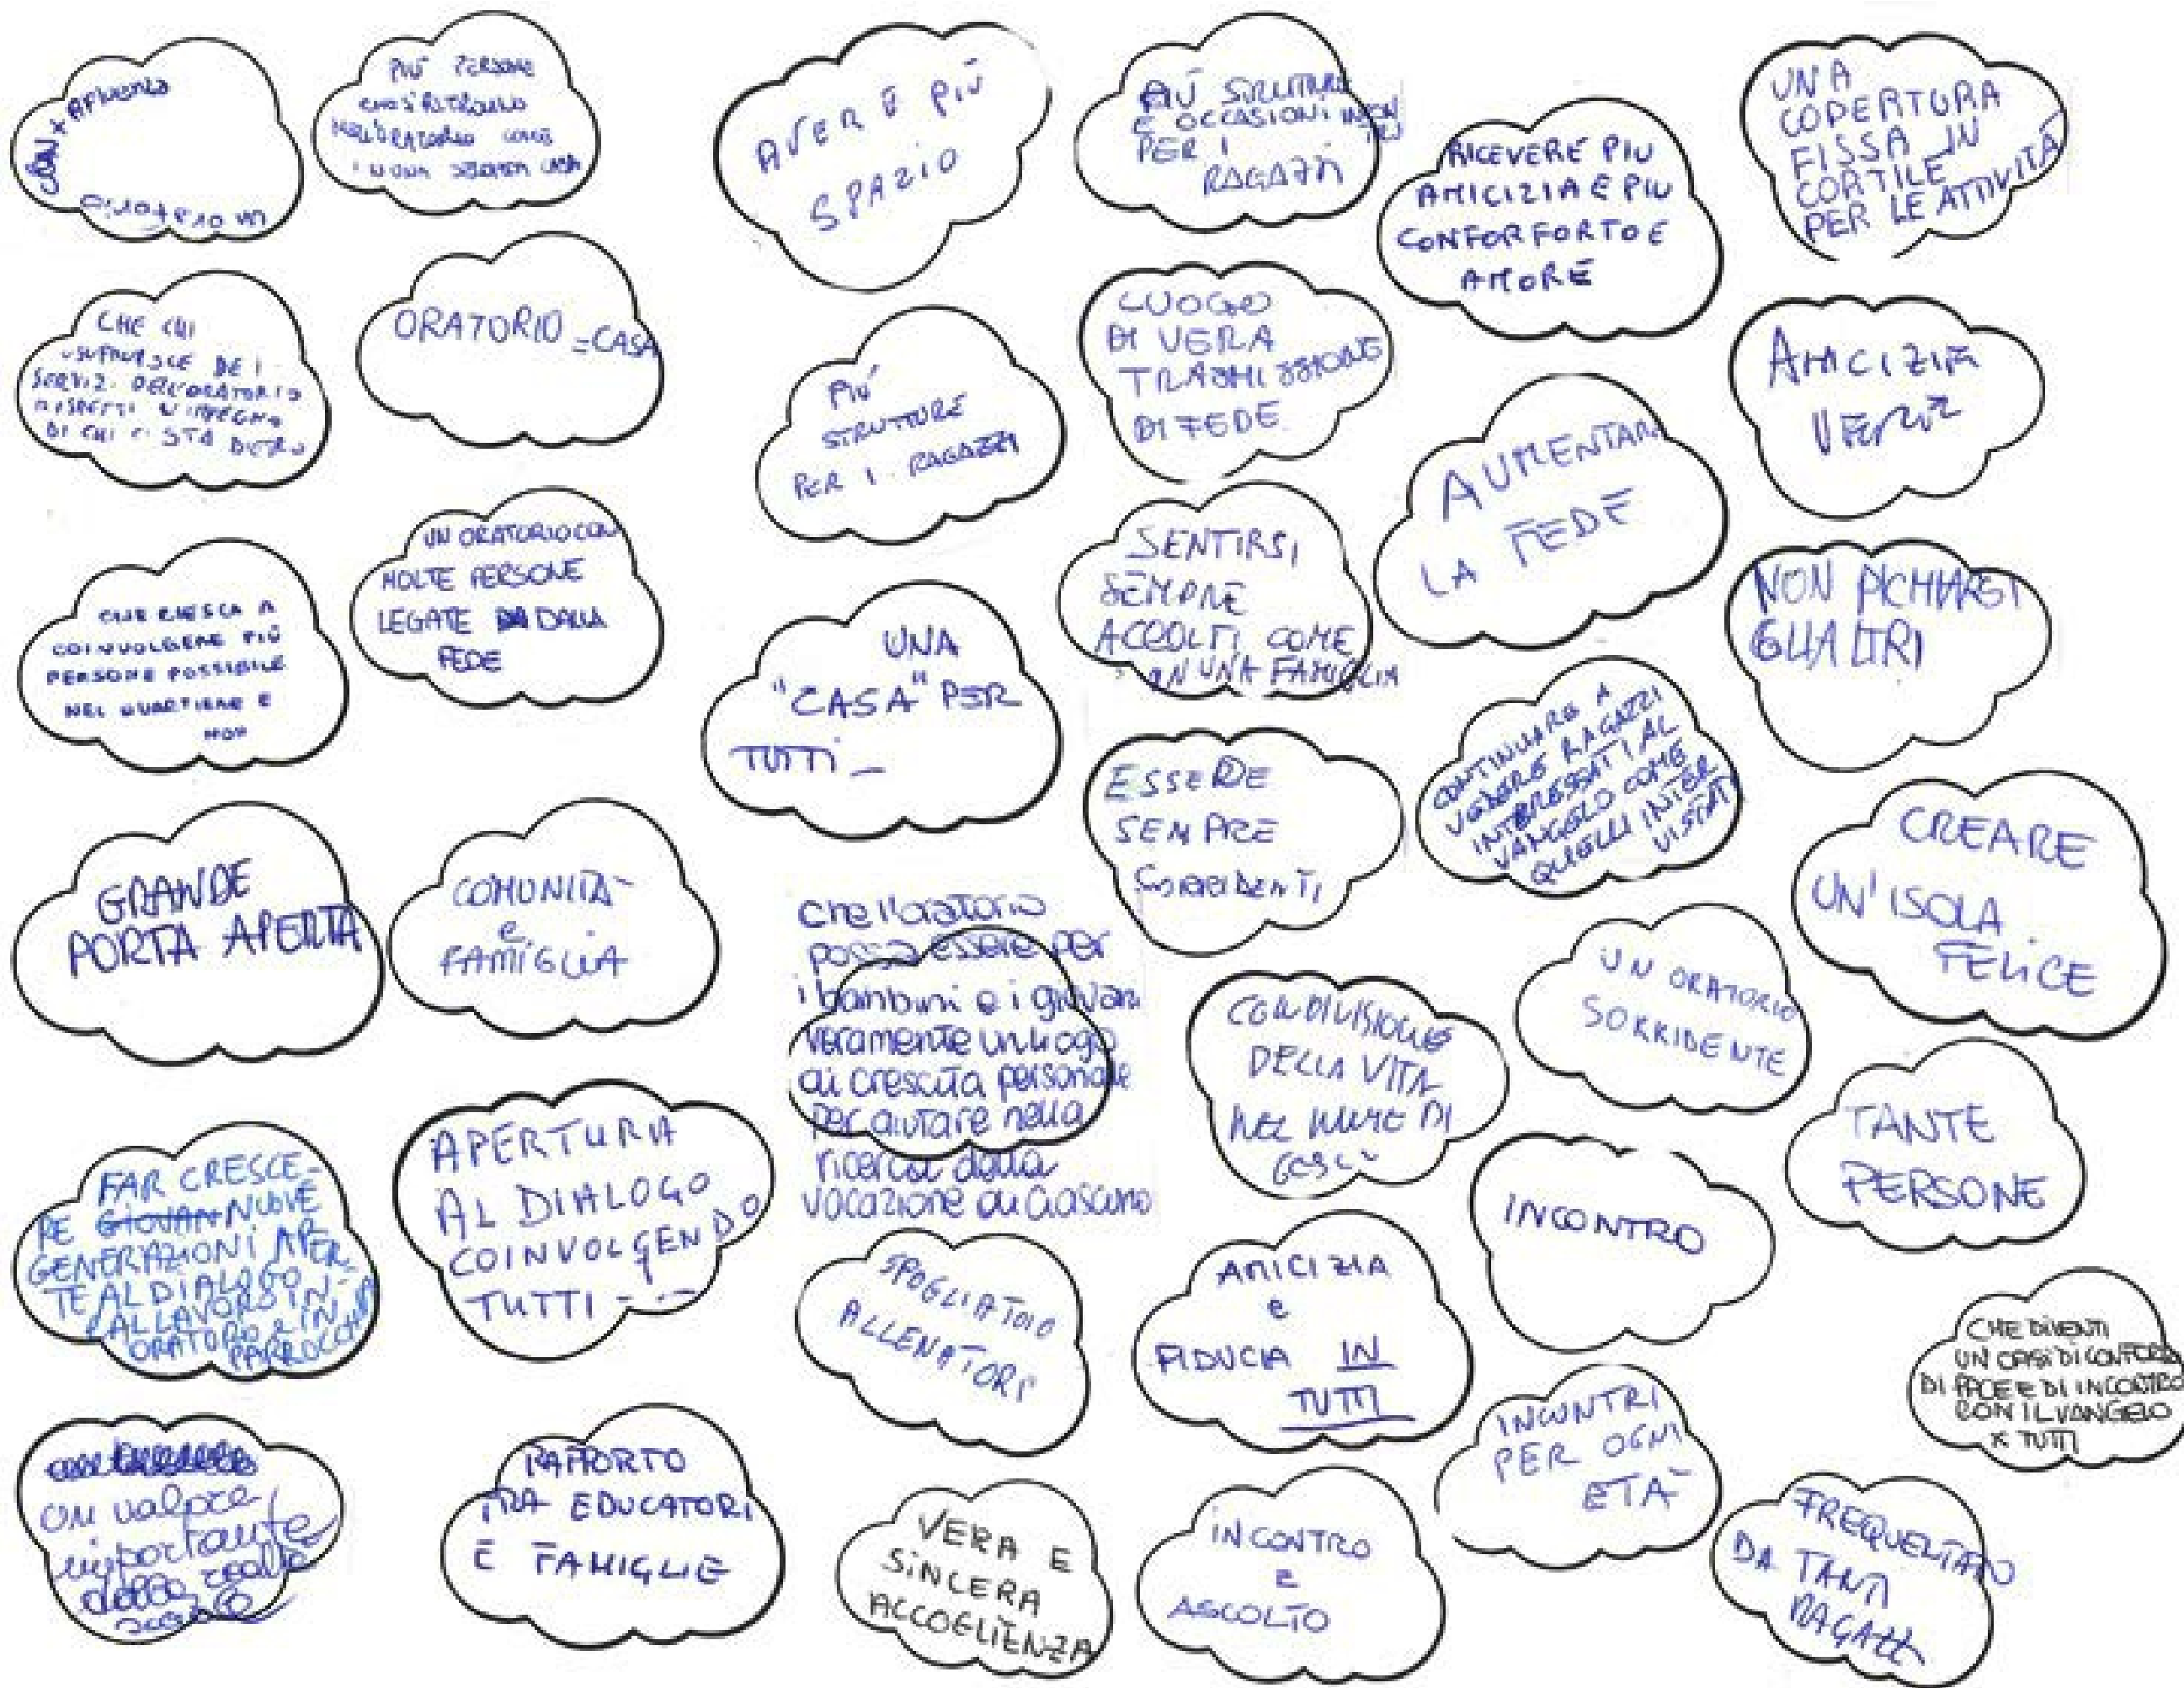 CON + AFLUENZA
UN ORATORIO
PIÙ PERSONE
CHE SI RITROVINO
NELL'ORATORIO COME
IN UNA SECONDA CASA
AVERE PIÙ
SPAZIO
PIÙ STRUTTURE
E OCCASIONI
PER I
RAGAZZI
RICEVERE PIU
AMICIZIA E PIU
CONFORFORTO E
AMORE
UNA
COPERTURA
FISSA IN
CORTILE
PER LE ATTIVITÀ
CHE CHI
USUFRUISCE DEI
SERVIZI DELL'ORATORIO
RISPETTI L'IMPEGNO
DI CHI CI STA DIETRO
ORATORIO = CASA
PIÙ
STRUTTURE
PER I RAGAZZI
LUOGO
DI VERA
TRASMISSIONE
DI FEDE
AUMENTARE
LA FEDE
AMICIZIA
VERA
CHE RIESCA A
COINVOLGERE PIÙ
PERSONE POSSIBILE
NEL QUARTIERE E
NON
UN ORATORIO CON
MOLTE PERSONE
LEGATE DALLA
FEDE
UNA
"CASA" PER
TUTTI _
SENTIRSI
SEMPRE
ACCOLTI COME
IN UNA FAMIGLIA
NON PICHIARSI
GLI ALTRI
ESSERE
SEMPRE
SORRIDENTI
CONTINUARE A
VEDERE RAGAZZI
INTERESSATI AL
VANGELO COME
QUELLI INTER
VISTATI
CREARE
UN'ISOLA
FELICE
GRANDE
PORTA APERTA
COMUNITÀ
e
FAMIGLIA
che l'oratorio
possa essere per
i bambini e i giovani
veramente un luogo
di crescita personale
per aiutare nella
ricerca della
vocazione di ciascuno
CONDIVISIONE
DELLA VITA
NEL NOME DI
GESÙ
UN ORATORIO
SORRIDENTE
TANTE
PERSONE
FAR CRESCE-
RE GIOVAN NUOVE
GENERAZIONI APER-
TE AL DIALOGO
AL LAVORO IN
ORATORIO E IN
PARROCCHIA
APERTURA
AL DIALOGO
COINVOLGENDO
TUTTI ---
SPOGLIATOIO
ALLENATORI
AMICIZIA
e
FIDUCIA IN
TUTTI
INCONTRO
CHE DIVENTI
UN OASI DI CONFORTO
DI PACE E DI INCONTRO
CON IL VANGELO
X TUTTI
un valore
importante
RAPPORTO
TRA EDUCATORI
E FAMIGLIE
VERA E
SINCERA
ACCOGLIENZA
INCONTRO
E
ASCOLTO
INCONTRI
PER OGNI
ETÀ
FREQUENTATO
DA TANTI
RAGAZZI